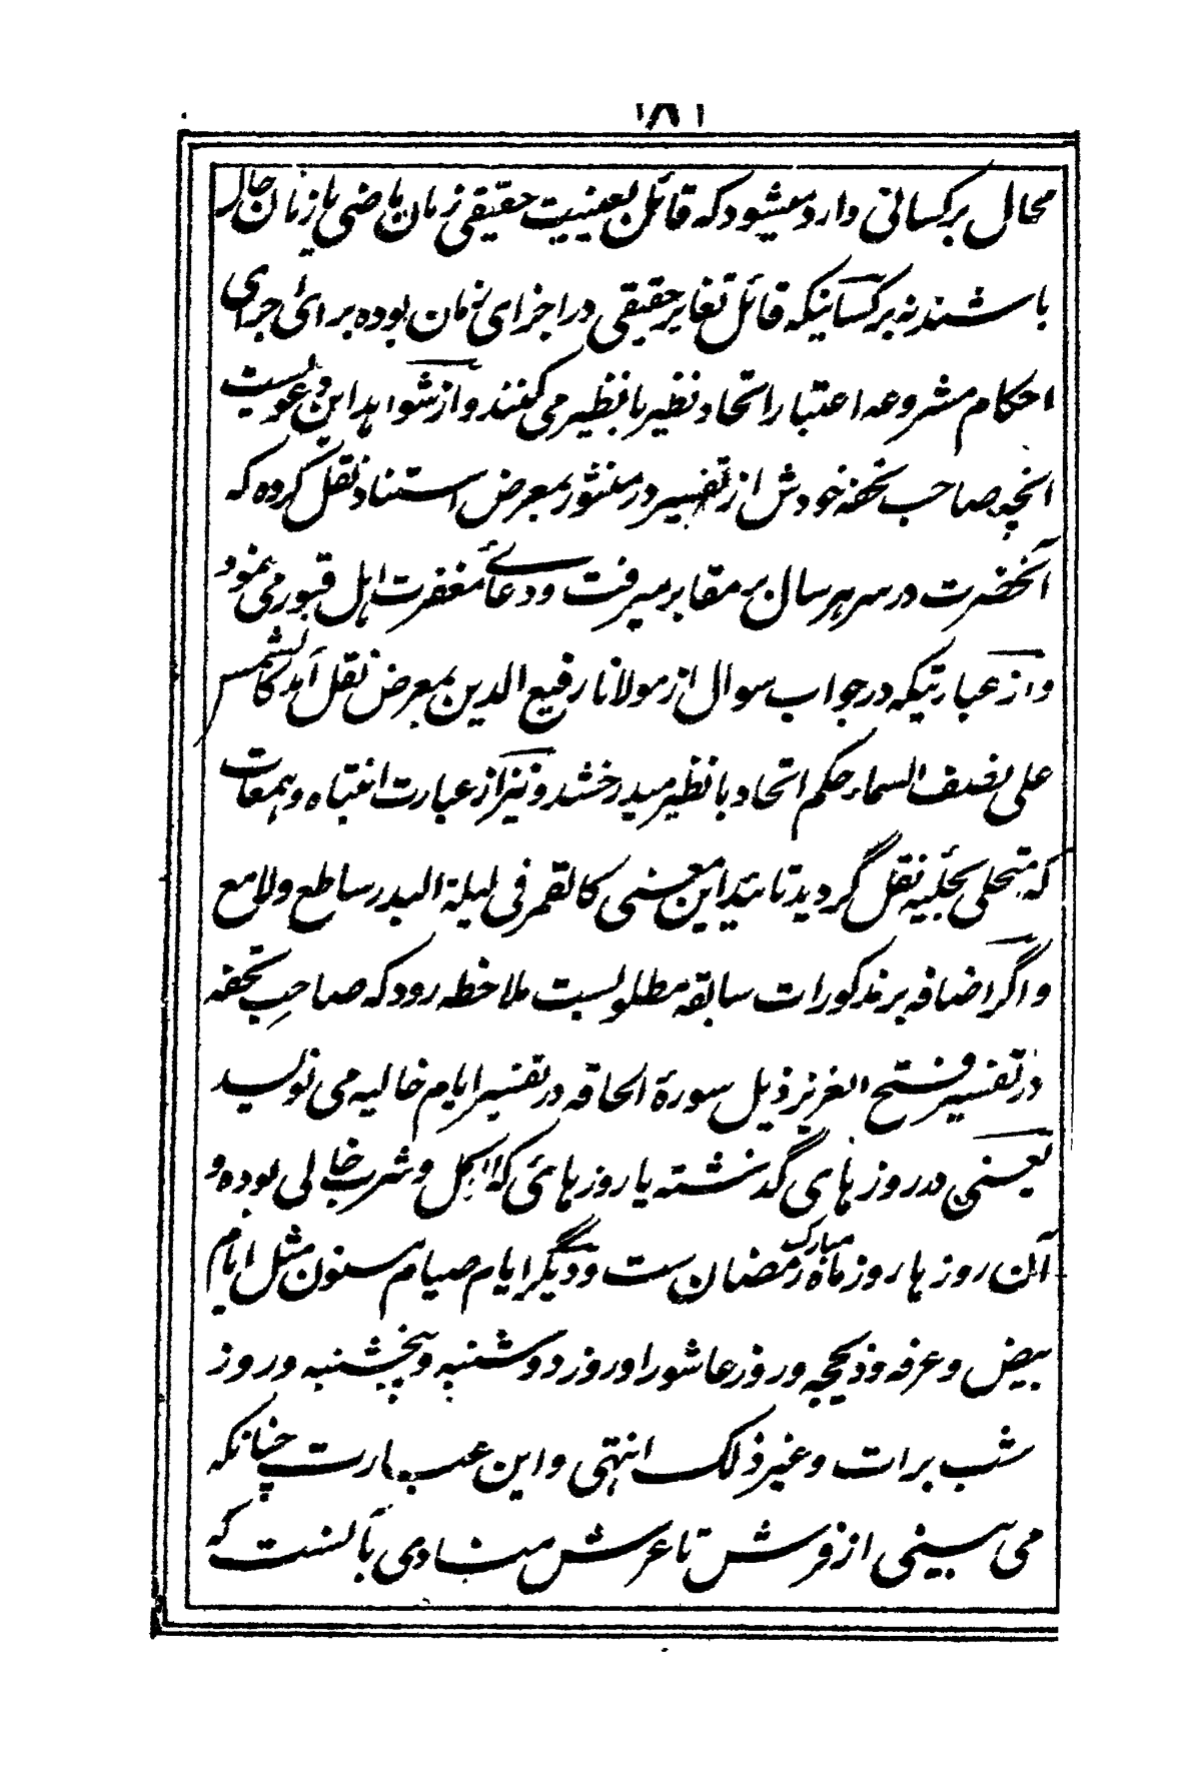 ۱۸۱
محال برکسانی وارد میشود که قائل بعینیت حقیقی زمان ماضی با زمان حال
باشند نه بر کسانیکه قائل تغایر حقیقی در اجزای زمان بوده برای اجرای
احکام مشروعه اعتبار اتحاد نظیر با نظیر می کنند و از شواهد این دعویست
انچه صاحب تحفه خودش از تفسیر در منثور بمعرض استناد نقل کرده که
آنحضرت در سر هر سال بر مقابر میرفت و دعائے مغفرت اہل قبور می نمود
و از عبارتیکه در جواب سوال از مولانا رفیع الدین بمعرض نقل آمد کالشمس
علی نصف السماء حکم اتحاد با نظیر میدرخشد و نیز از عبارت انتباه و ہمعات
که متحلی بحلیه نقل گردید تائید این معنی کالقمر فی لیلة البدر ساطع و لامع
و اگر اضافه بر مذکورات سابقه مطلوبست ملاخطه رود که صاحبِ تحفه
در تفسیر فتح العزیز ذیل سورۂ الحاقه در تفسیر ایام خالیه می نویسد
یعنی در روز ہای گذشته یا روز ہائی که از اکل و شرب خالی بوده و
آن روز ہا روز ماه مبارک رمضان ست و دیگر ایام صیام مسنون مثل ایام
بیض و عرفه و ذیحجه و روز عاشورا و روز دوشنبه و پنجشنبه و روز
شب برات و غیر ذلک انتہی و این عبارت چنانکه
می بینی از فرش تا عرش منادی بآنست که